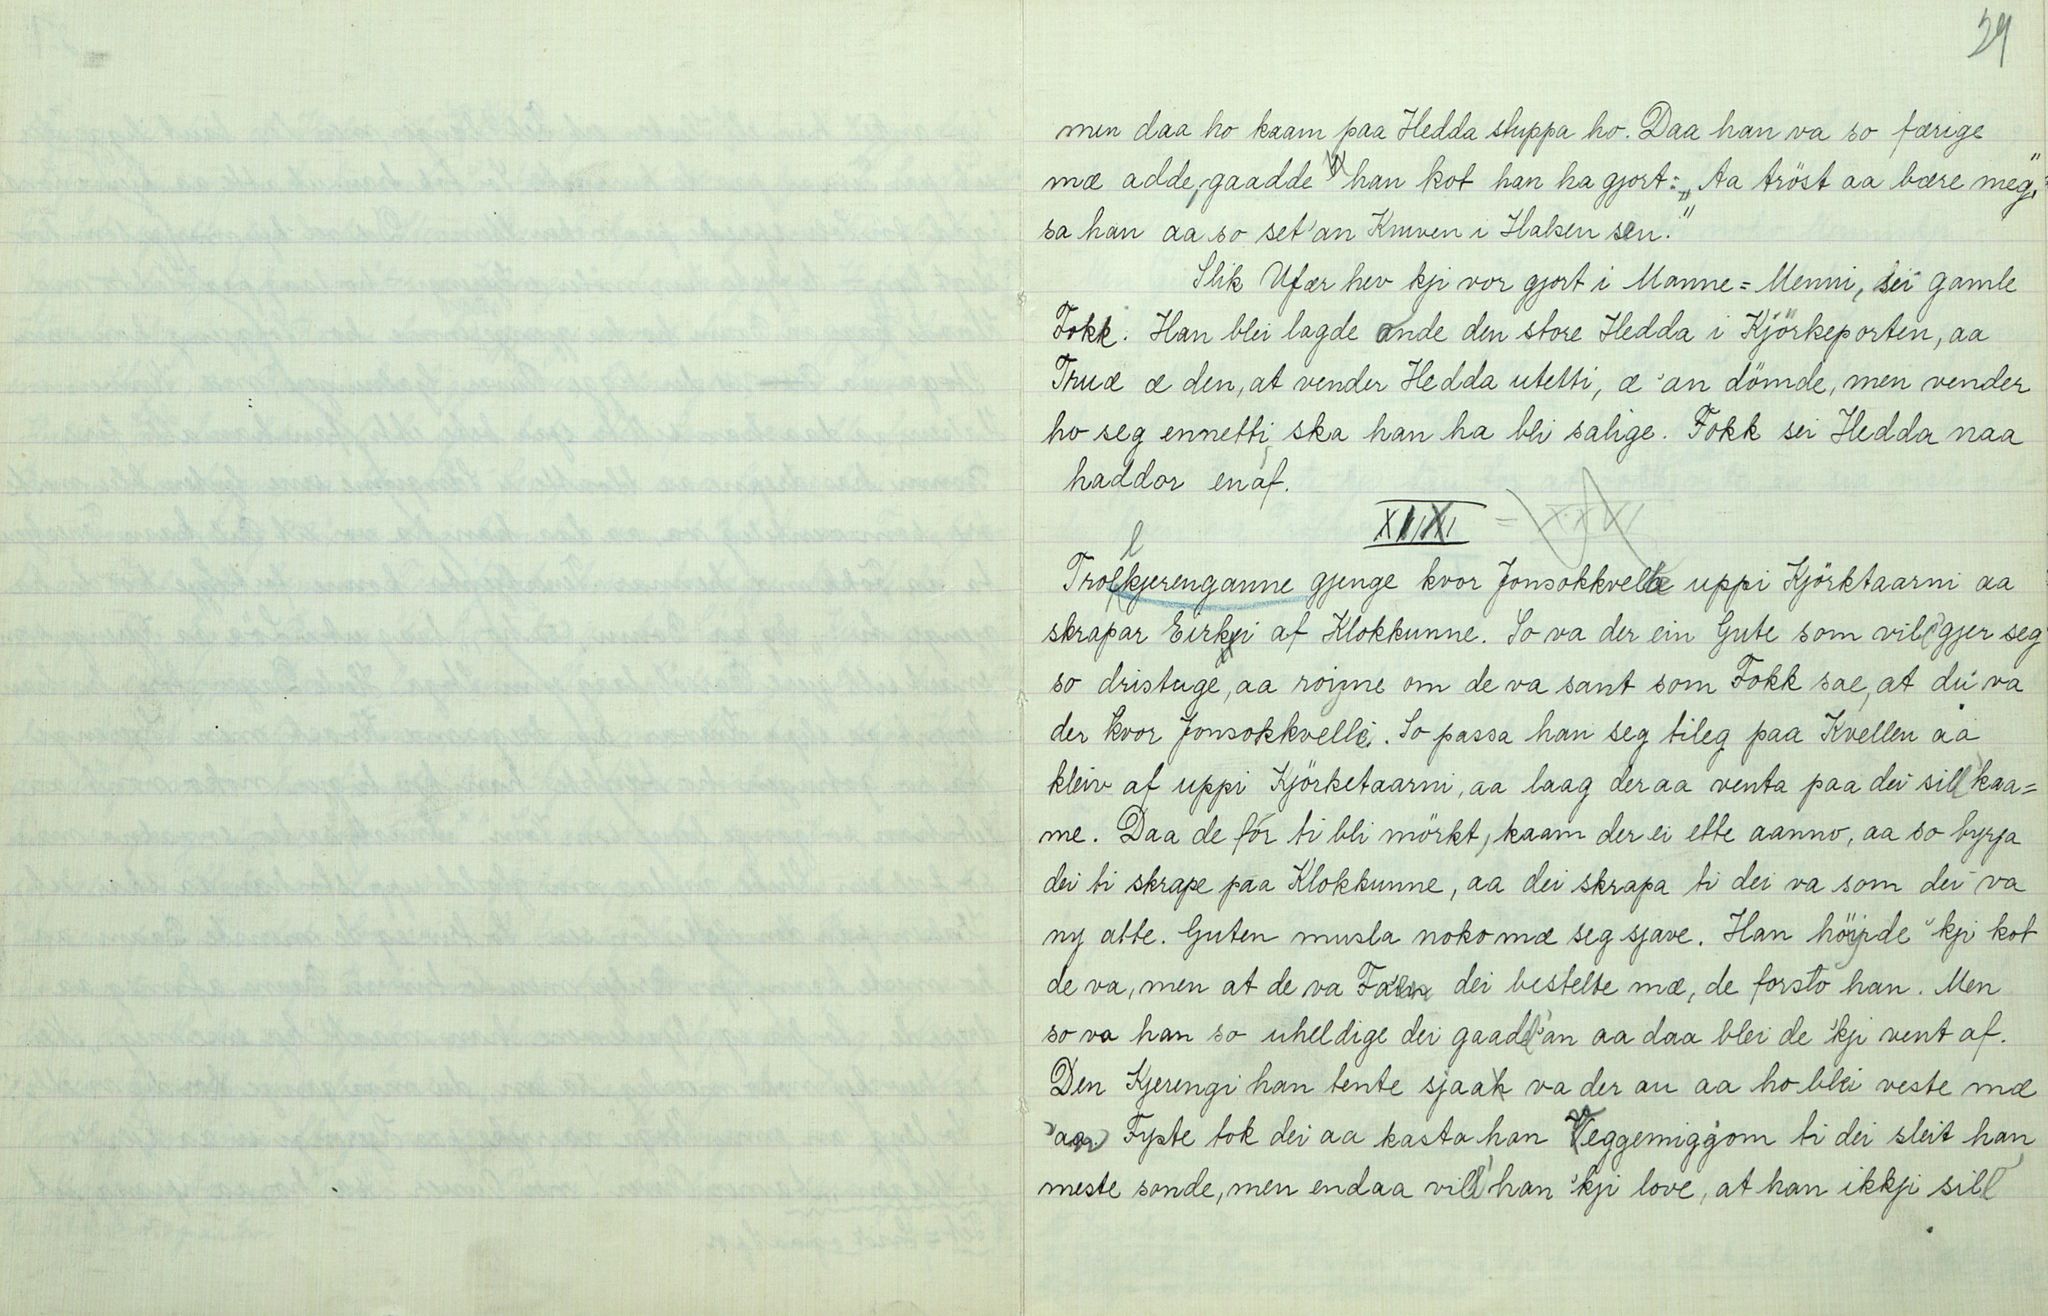 29
men daa ho kaam paa Hedda stuppa ho. Daa han va so færige
mæ adde, gaadde han kot han ha gjort: „Aa tröst aa bære meg,"
sa han aa so set'an Kniven i Halsen sen."
Slik Ufær hev kji vor gjort i Manne=Menni, sei gamle
Fokk. Han blei lagde onde den store Hedda i Kjörkeporten, aa
Truæ æ den, at vender Hedda utetti, æ 'an dömde, men vender
ho seg ennetti, ska han ha bli salige. Fokk sei Hedda naa
haddor enaf.
Trollkjerenganne gjenge kvor Jonsokkvelle uppi Kjörktaarni aa
skrapar Eirkji af Klokkunne. So va der ein Gute som vill gjer seg
so dristuge, aa röyne om de va sant som Fokk sae, at dei va
der kvor Jonsokkvelle. So passa han seg tileg paa Kvellen aa
kleiv af uppi Kjörketaarni, aa laag der aa venta paa dei sill kaa=
me. Daa de fór ti bli mörkt, kaam der ei ette aanno, aa so byrja
dei ti skrape paa Klokkunne, aa dei skrapa ti dei va som dei va
ny atte. Guten musla noko mæ seg sjave. Han höyrde 'kji kot
de va, men at de va dei bestelte mæ, de forsto han. Men
so va han so uheldige dei gaadd'an aa daa blei de 'kji vent af.
Den Kjerengi han tente sjaak va der au aa ho blei veste mæ
'an. Fyste tok dei aa kasta han Veggemiggjom ti dei sleit han
meste sonde, men endaa vill' han 'kji love, at han ikkji sill